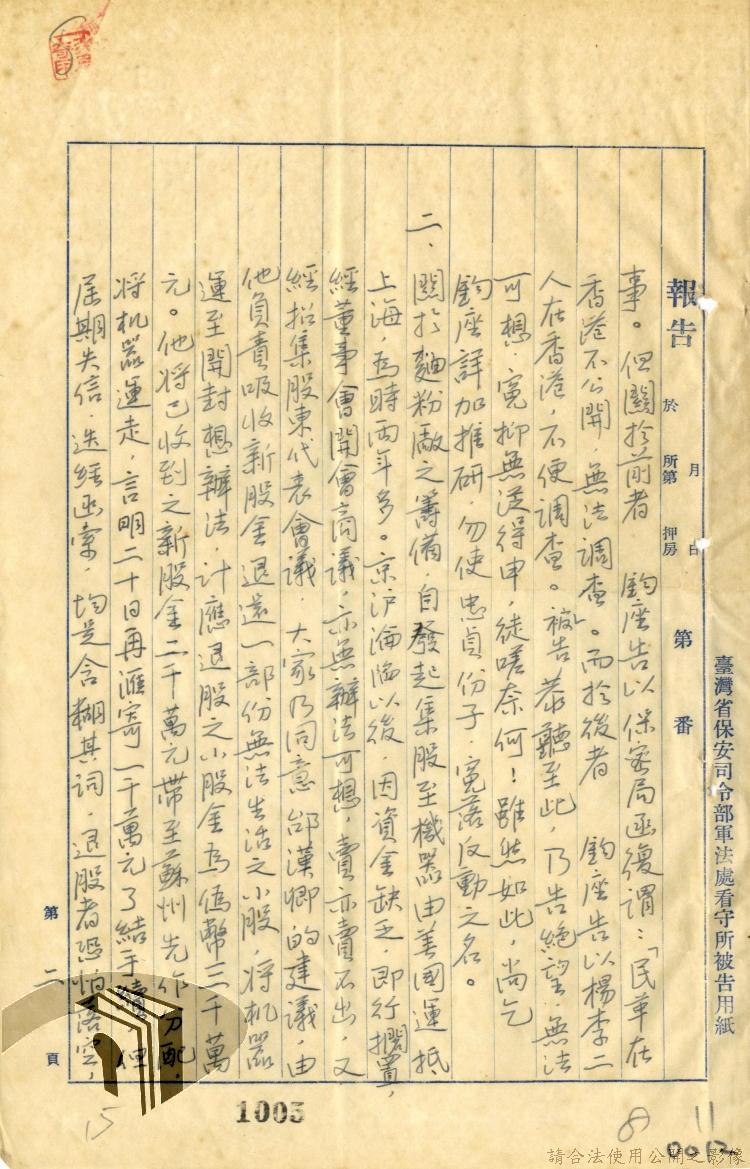 臺灣省保安司令部軍法處看守所被告用紙
報告 於 月 日 所第 押房 第 番
事。但關於前者 鈞座告以保密局函復謂：「民革在
香港不公開，無法調查。而於後者 鈞座告以楊李二
人在香港，不便調查。被告恭聽至此，乃告絕望，無法
可想，冤抑無從得申，徒嗟奈何！雖然如此，尚乞
鈞座詳加推研，勿使忠貞份子，冤落反動之名。
二、關於麵粉廠之籌備，自發起集股至機器由美國運抵
上海，為時兩年多。京沪淪陷以後，因資金缺乏，即行擱置，
經董事會開會商議，亦無辦法可想，賣亦賣不出，又
經招集股東代表會議，大家乃同意邰漢卿的建議，由
他負責吸收新股金退還一部份無法生活之小股，將机器
運至開封想辦法，計應退股之小股金為偽幣三千萬
元。他將已收到之新股金二千萬元帶至蘇州先作分配，
將机器運走，言明二十日再滙寄一千萬元了結手續，但
屆期失信，迭經函索，均是含糊其詞，退股者恐怕落空，
第 二 頁
15
1005
8
11
請合法使用公開之影像